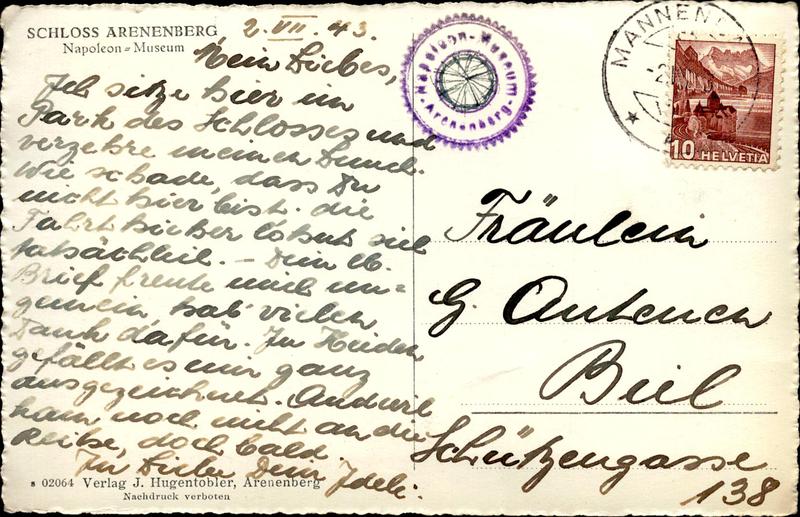 SCHLOSS ARENENBERG
Napoleon=Museum
2. VII. 43.
Mein Liebes,
Ich sitze hier im
Park des Schlosses und
verzehre meinen Lunch.
Wie schade, dass Du
nicht hier bist. die
Fahrt hieher lohnt sich
tatsächlich. – Dein lb.
Brief freute mich un=
gemein, hab' vielen
Dank dafür. In Heiden
gefällt es mir ganz
ausgezeichnet. Andwil
kam noch nicht an die
Reihe, doch bald.
In Liebe Dein Ideli.
s 02064 Verlag J. Hugentobler, Arenenberg
Nachdruck verboten
Napoleon-Museum
-Arenenberg-
MANNEN
10 HELVETIA
Fräulein
G. Antenen
Biel
Schützengasse
138